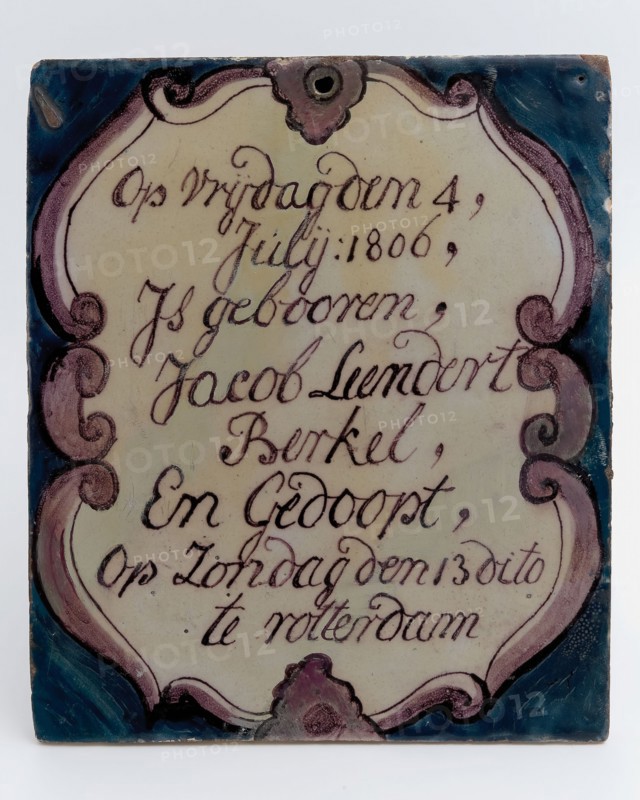 Op Vrÿdag den 4,
Julÿ: 1806,
Js gebooren,
Jacob Leendert
Berkel,
En Gedoopt,
Op Zondag den 13 dito
te rotterdam
PHOTO12